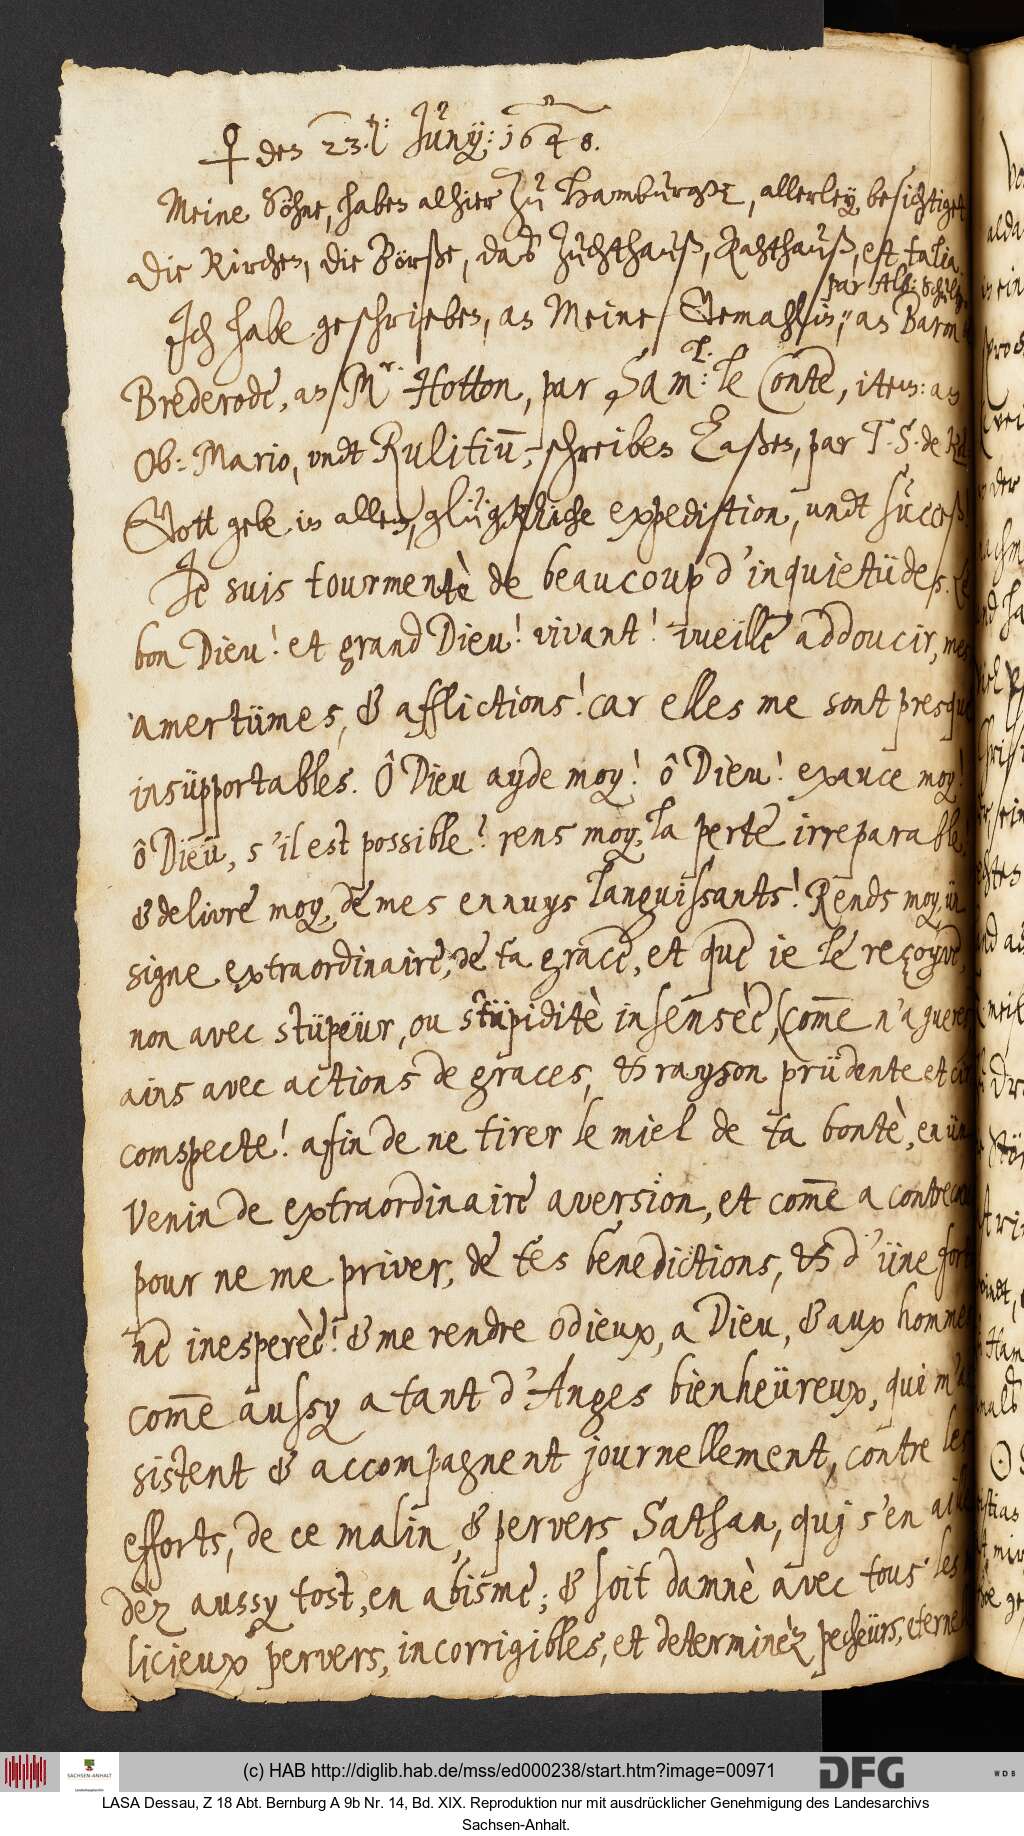 ♀ den 23.t: Junÿ: 1648.
Meine Söhne, haben alhier zu Hamburgk, allerley besichtiget
Die Kirchen, die Börße, daß Zuchthauß, Rahthauß, et talia.
par Alb: Schulte
Ich habe geschrieben, an Meine Gemahlin, an Baron
Brederode, an Mr. Hotton, par Sam: L: le Conte, item: an
Ob: Mario, undt Rulitium, schreiben laßen, par T. S. de
Gott gebe in allem, glückliche expedition, undt succeß.
Je suis tourmentè de beaucoup d'inquietüdes. Le
bon Dieu! et grand Dieu! vivant! vueille addoucir, mes
amertümes, & afflictions! car elles me sont presque
insüpportables. Ô Dieu ayde moy! ô Dieu! exauce moy!
ô Dieu, s'il est possible? rens moy, la perte irreparable,
& delivre moy, de mes ennuys languissants! Rends moy, ün
signe extraordinaire, de ta grace, et que ie le reçoyve,
non avec stüpeür, ou stüpiditè insensèe, (come n'agueres)
ains avec actions de graces, & rayson prüdente et cir
comspecte! afin de ne tirer le miel de ta bontè, en ün
Venin de extraordinaire aversion, et come a contrecœur
pour ne me priver, de tes benedictions, & d'üne fortu
ne inesperèe! & me rendre odieux, a Dieu, & aux hommes
come aussy a tant d'Anges bienheüreux, qui m'as
sistent & accompagnent journellement, contre les
efforts, de ce malin, & pervers Sathan, qui s'en aille
dez aussy tost, en abisme; & soit damnè avec tous les
licieux pervers, incorrigibles, et determinèz pecheürs, eterne
(c) HAB http://diglib.hab.de/mss/ed000238/start.htm?image=00971
SACHSEN-ANHALT
DFG
WDB
LASA Dessau, Z 18 Abt. Bernburg A 9b Nr. 14, Bd. XIX. Reproduktion nur mit ausdrücklicher Genehmigung des Landesarchivs
Sachsen-Anhalt.